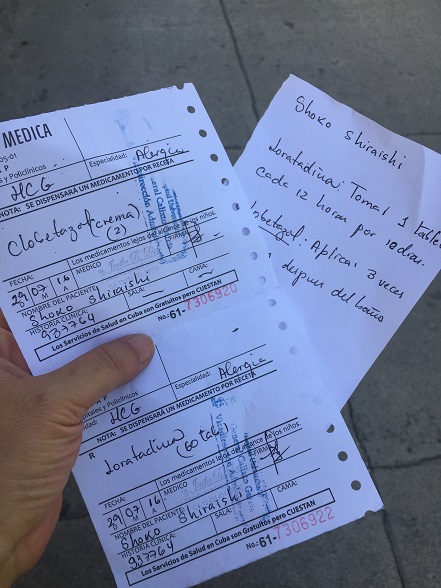 MEDICA
05-01
A P
pitales y Policlínicos
Especialidad: Alergia
HCG
NOTA: SE DISPENSARÁ UN MEDICAMENTO POR RECETA
Clobetazol (crema)
(2)
Los medicamentos lejos del alcance de los niños.
FECHA:
MEDICO
FIRMA
29 07 16
M A
NOMBRE DEL PACIENTE:
SALA:
CAMA:
Shoko Shiraishi
HISTORIA CLÍNICA:
937764
No.: 61- 7306920
Los Servicios de Salud en Cuba son Gratuitos pero CUESTAN
A P
pitales y Policlínicos
Especialidad: Alergia
HCG
NOTA: SE DISPENSARÁ UN MEDICAMENTO POR RECETA
R
Loratadina
Los medicamentos lejos del alcance de los niños.
FECHA:
MEDICO
29 07 16
M A
NOMBRE DEL PACIENTE:
SALA:
CAMA:
Shoko Shiraishi
HISTORIA CLÍNICA:
937764
No.: 61- 7306922
Los Servicios de Salud en Cuba son Gratuitos pero CUESTAN
Shoko Shiraishi
Loratadina: Tomar 1 table
cada 12 horas por 10 dias.
lobetazol: Aplicar 3 veces
despues del baño